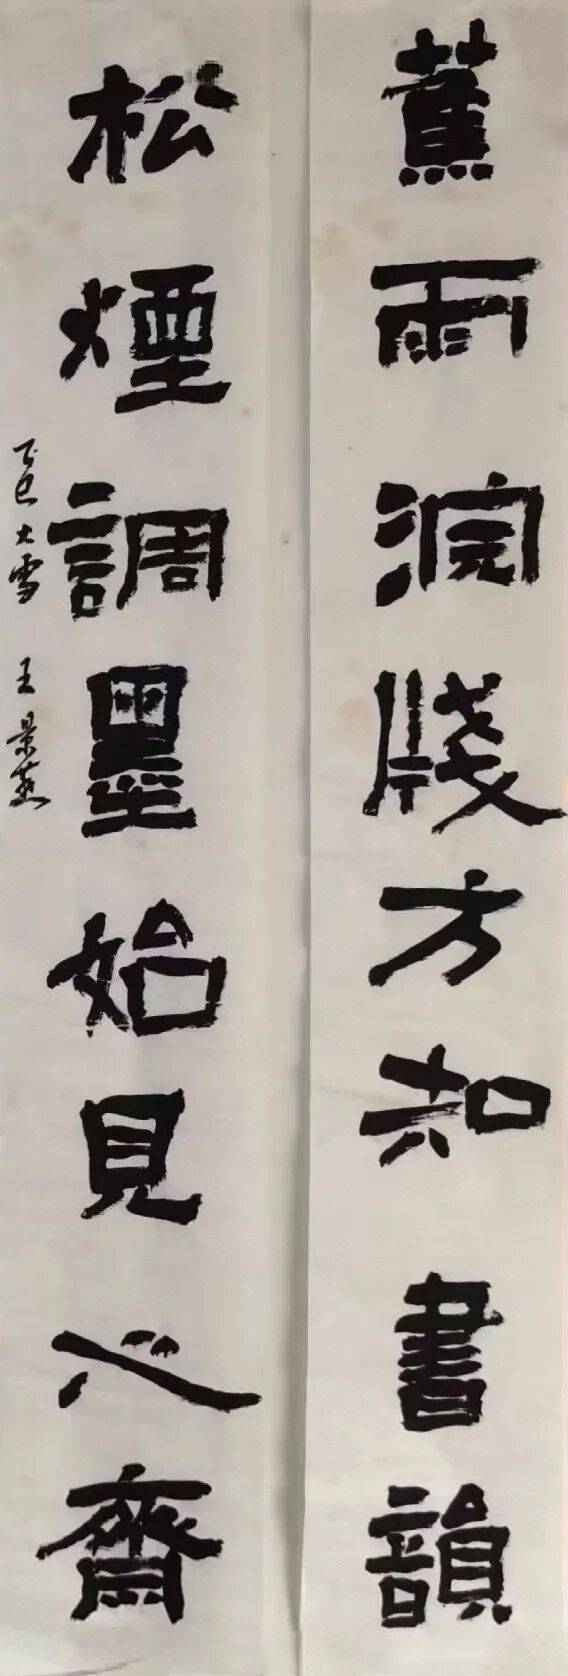 蕉雨浣牋方知書韻
松煙調墨始見心齋
乙巳大雪 王景燕